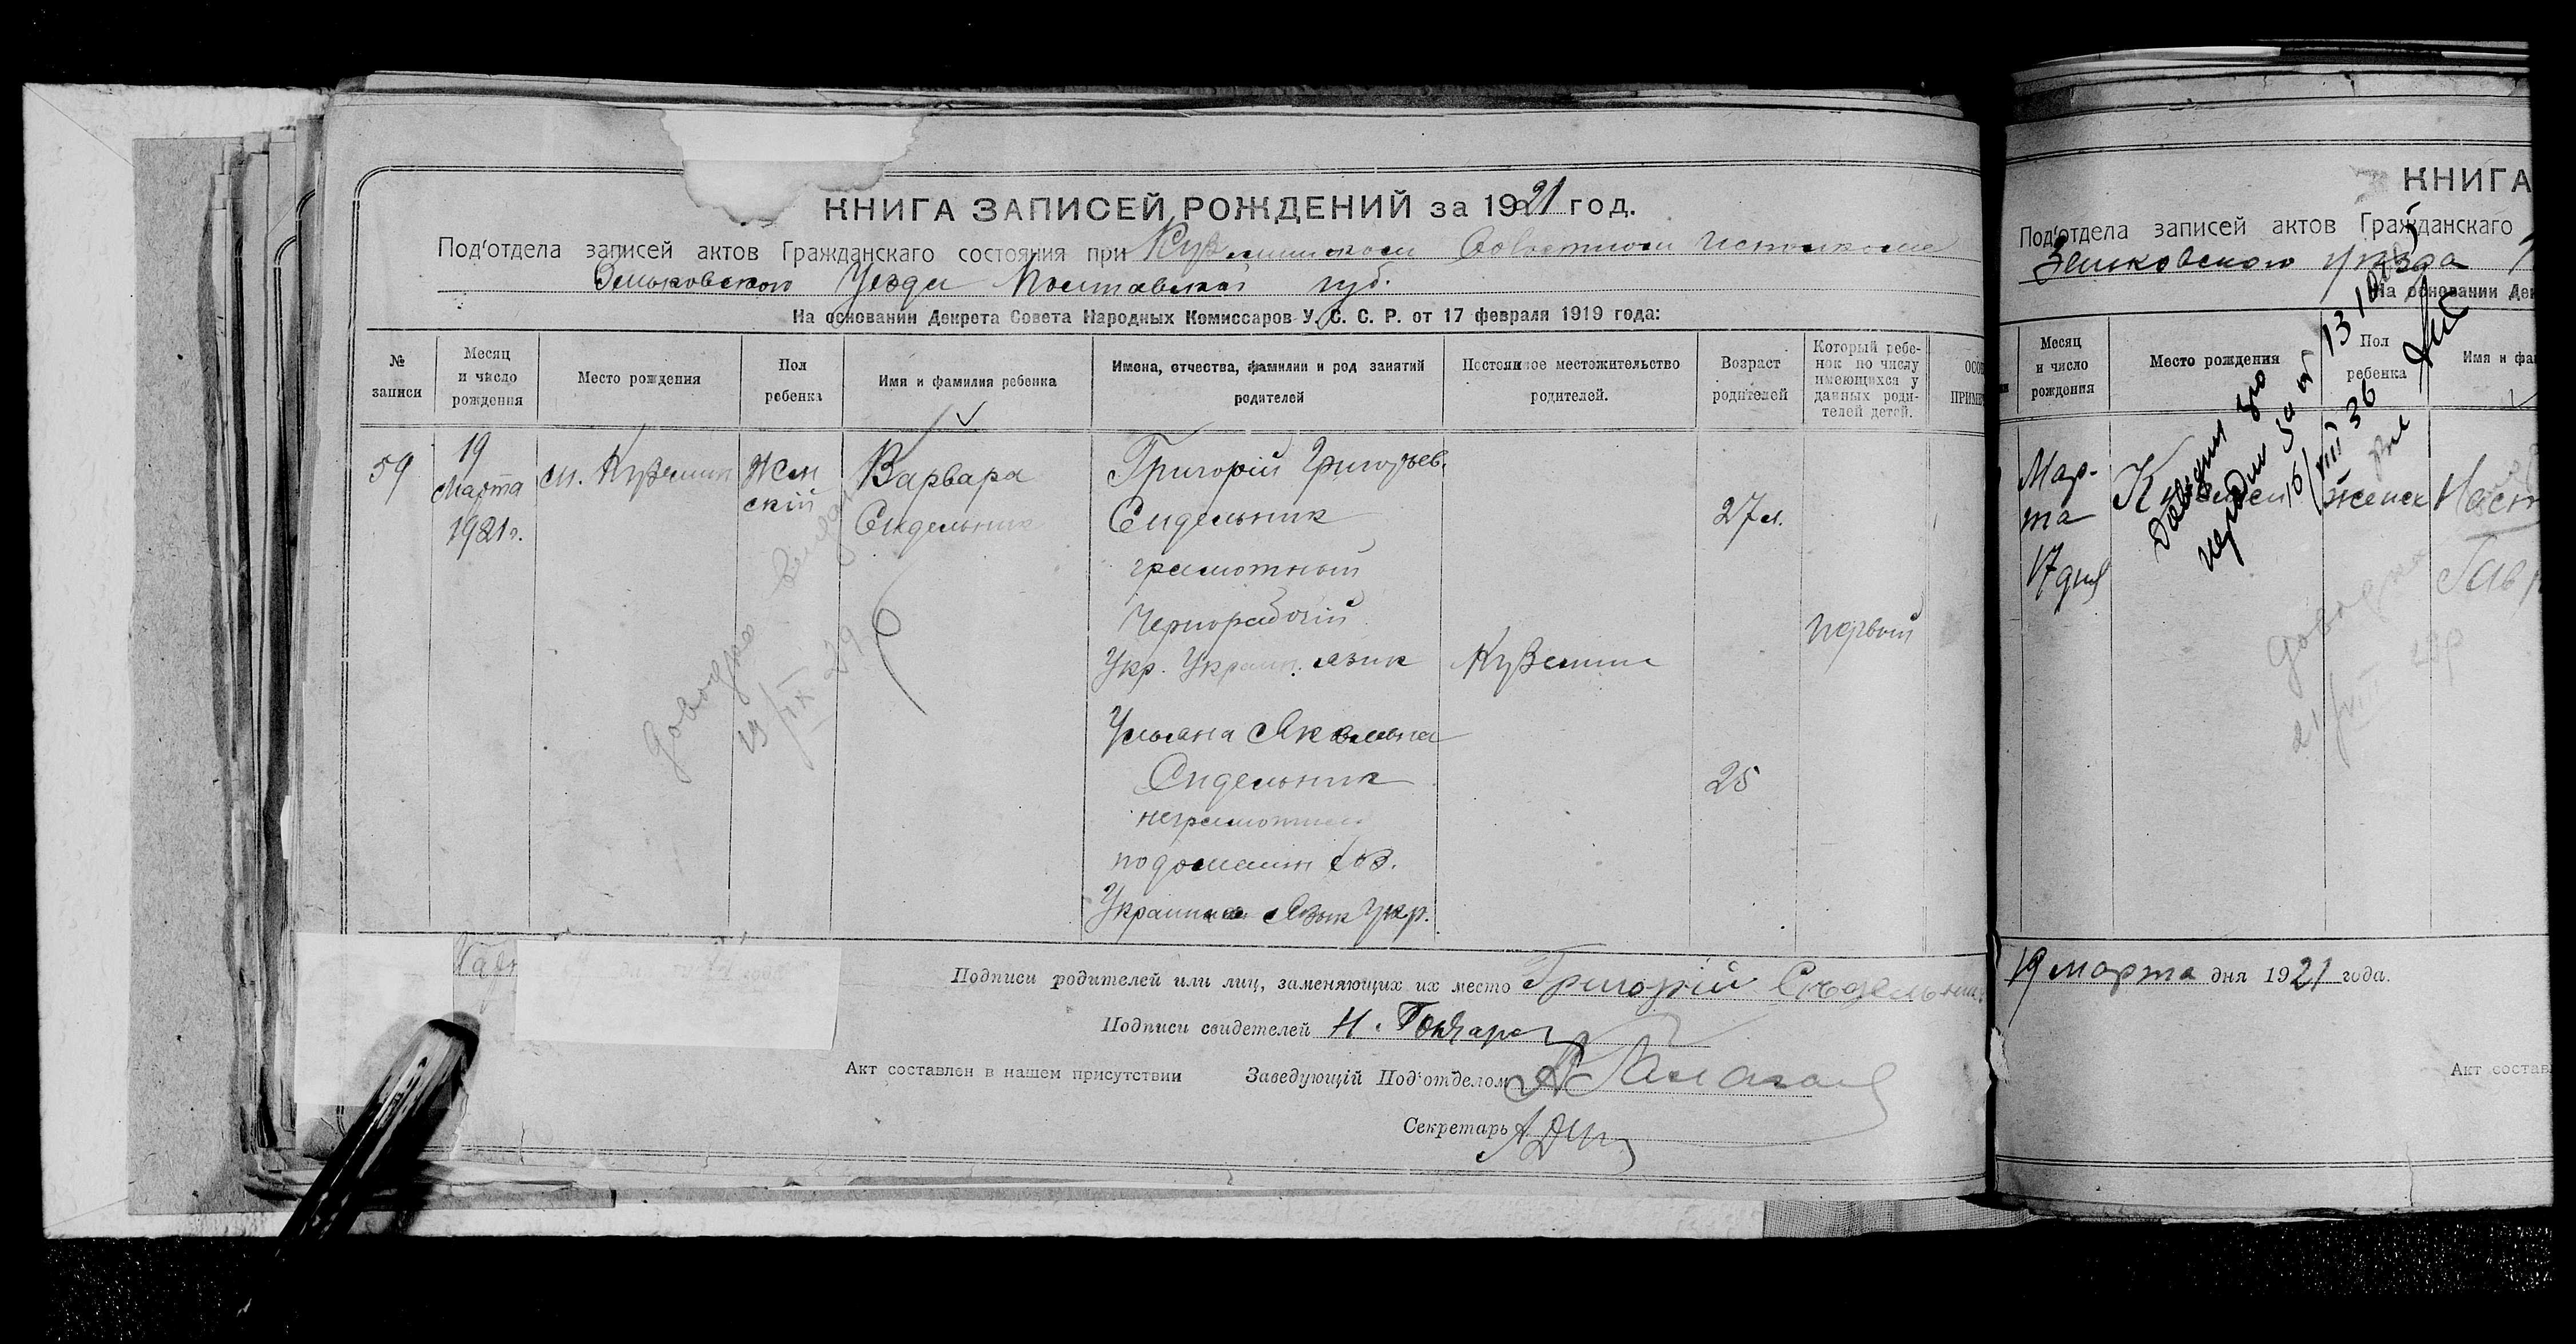 КНИГА ЗАПИСЕЙ РОЖДЕНИЙ за 1921 год.
Под'отдела записей актов Гражданскаго состояния при
Зеньковского Уезда Полтавской губ.
На основании Декрета Совета Народных Комиссаров У. С. С. Р. от 17 февраля 1919 года:
№ записи
Месяц и число рождения
Место рождения
Пол ребенка
Имя и фамилия ребенка
Имена, отчества, фамилии и род занятий родителей
Постоянное местожительство родителей.
Возраст родителей
Который ребенок по числу имеющихся у данных родителей детей.
59
19 Марта 1921 г.
м. Куземин
Жен
скій
Варвара
Сидельник
Григорій Григорьев.
Сидельник
грамотный
Чернорабочій
Укр. Украин. язик
Ульяна Яковлевна
Сидельник
неграмотная
по домашн хоз.
Язык Укр.
Куземин
27 л.
25
первый
19/IX 29
Подписи родителей или лиц, заменяющих их место Григорій
Подписи свидетелей Н. Гончар
Акт составлен в нашем присутствии
Заведующій Под'отделом
Секретарь
КНИГА
Под'отдела записей актов Гражданскаго
Зеньковского уезда
На основании Дек
Месяц и число рождения
Место рождения
Пол ребенка
Имя и фа
Мар-
та
17 дня
женск
19 марта дня 1921 года.
Акт состав